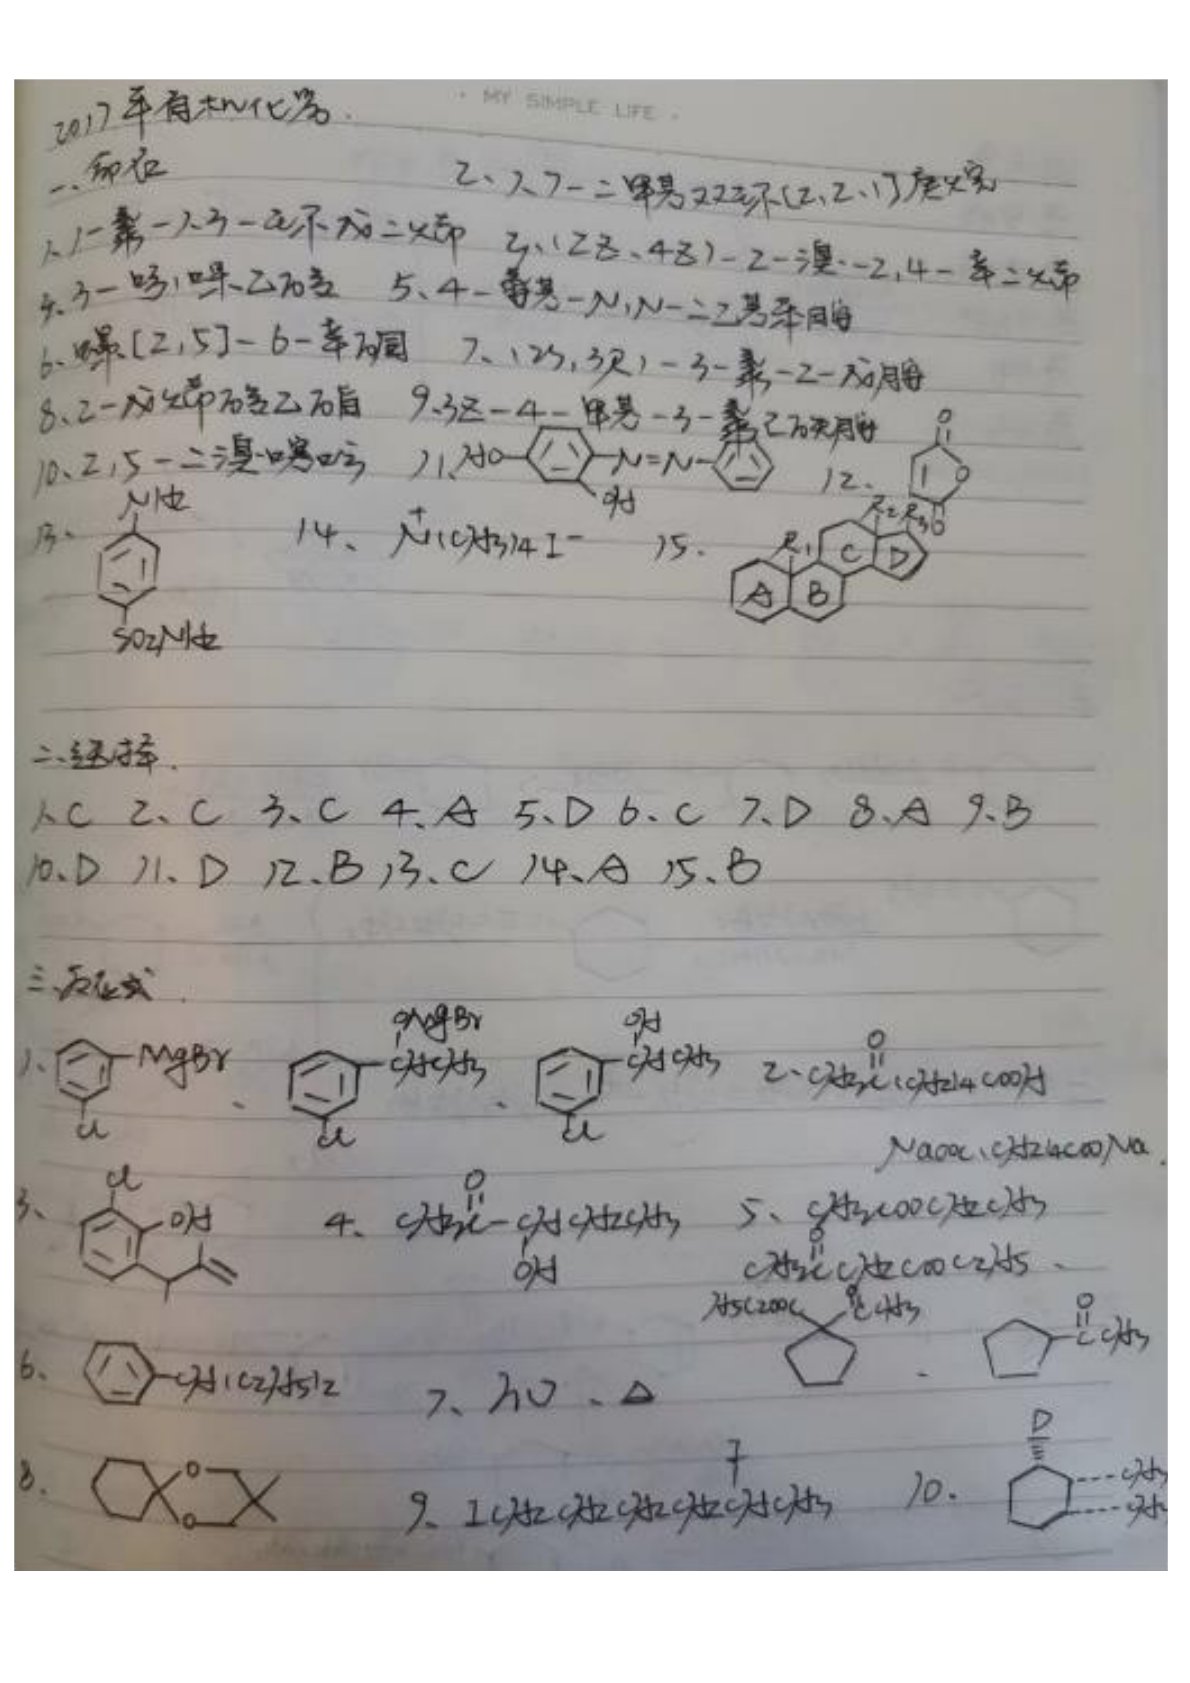 · MY SIMPLE LIFE ·
2017年有机化学.
一、命名
2、7,7-二甲基双环[2,2,1]庚
1、1-苯-1,3-环戊二烯 3、(2Z、4Z)-2-溴-2,4-辛二烯
4、3-吲哚乙酸 5、4-苄基-N,N-二乙基苯胺
6、螺[2,5]-6-辛酮 7、(2S,3R)-3-苯-2-戊胺
8、2-戊烯酸乙酯 9、3Z-4-甲基-3-苯
10、2,5-二溴噻吩 11、HO N=N OH 12、O O O
13、NH2 SO2NH2 14、N+(CH3)4I- 15、R1 R2 R3 A B C D
二、选择.
1、C 2、C 3、C 4、A 5、D 6、C 7、D 8、A 9、B
10、D 11、D 12、B 13、C 14、A 15、B
三、反应式.
1、MgBr Cl 、 OMgBr CHCH3 Cl 、 OH CHCH3 Cl 2、CH3C(CH2)4COOH O
NaOOC(CH2)4COONa.
3、Cl OH 4、CH3C-CHCH2CH3 O OH 5、CH3COOCH2CH3
CH3CCH2COOC2H5 、 O
H5C2OOC CCH3 O 、 CCH3 O
6、CH(C2H5)2 7、hυ 、△
8、O O 9、ICH2CH2CH2CH2CHCH3 F 10、D CH3 CH3